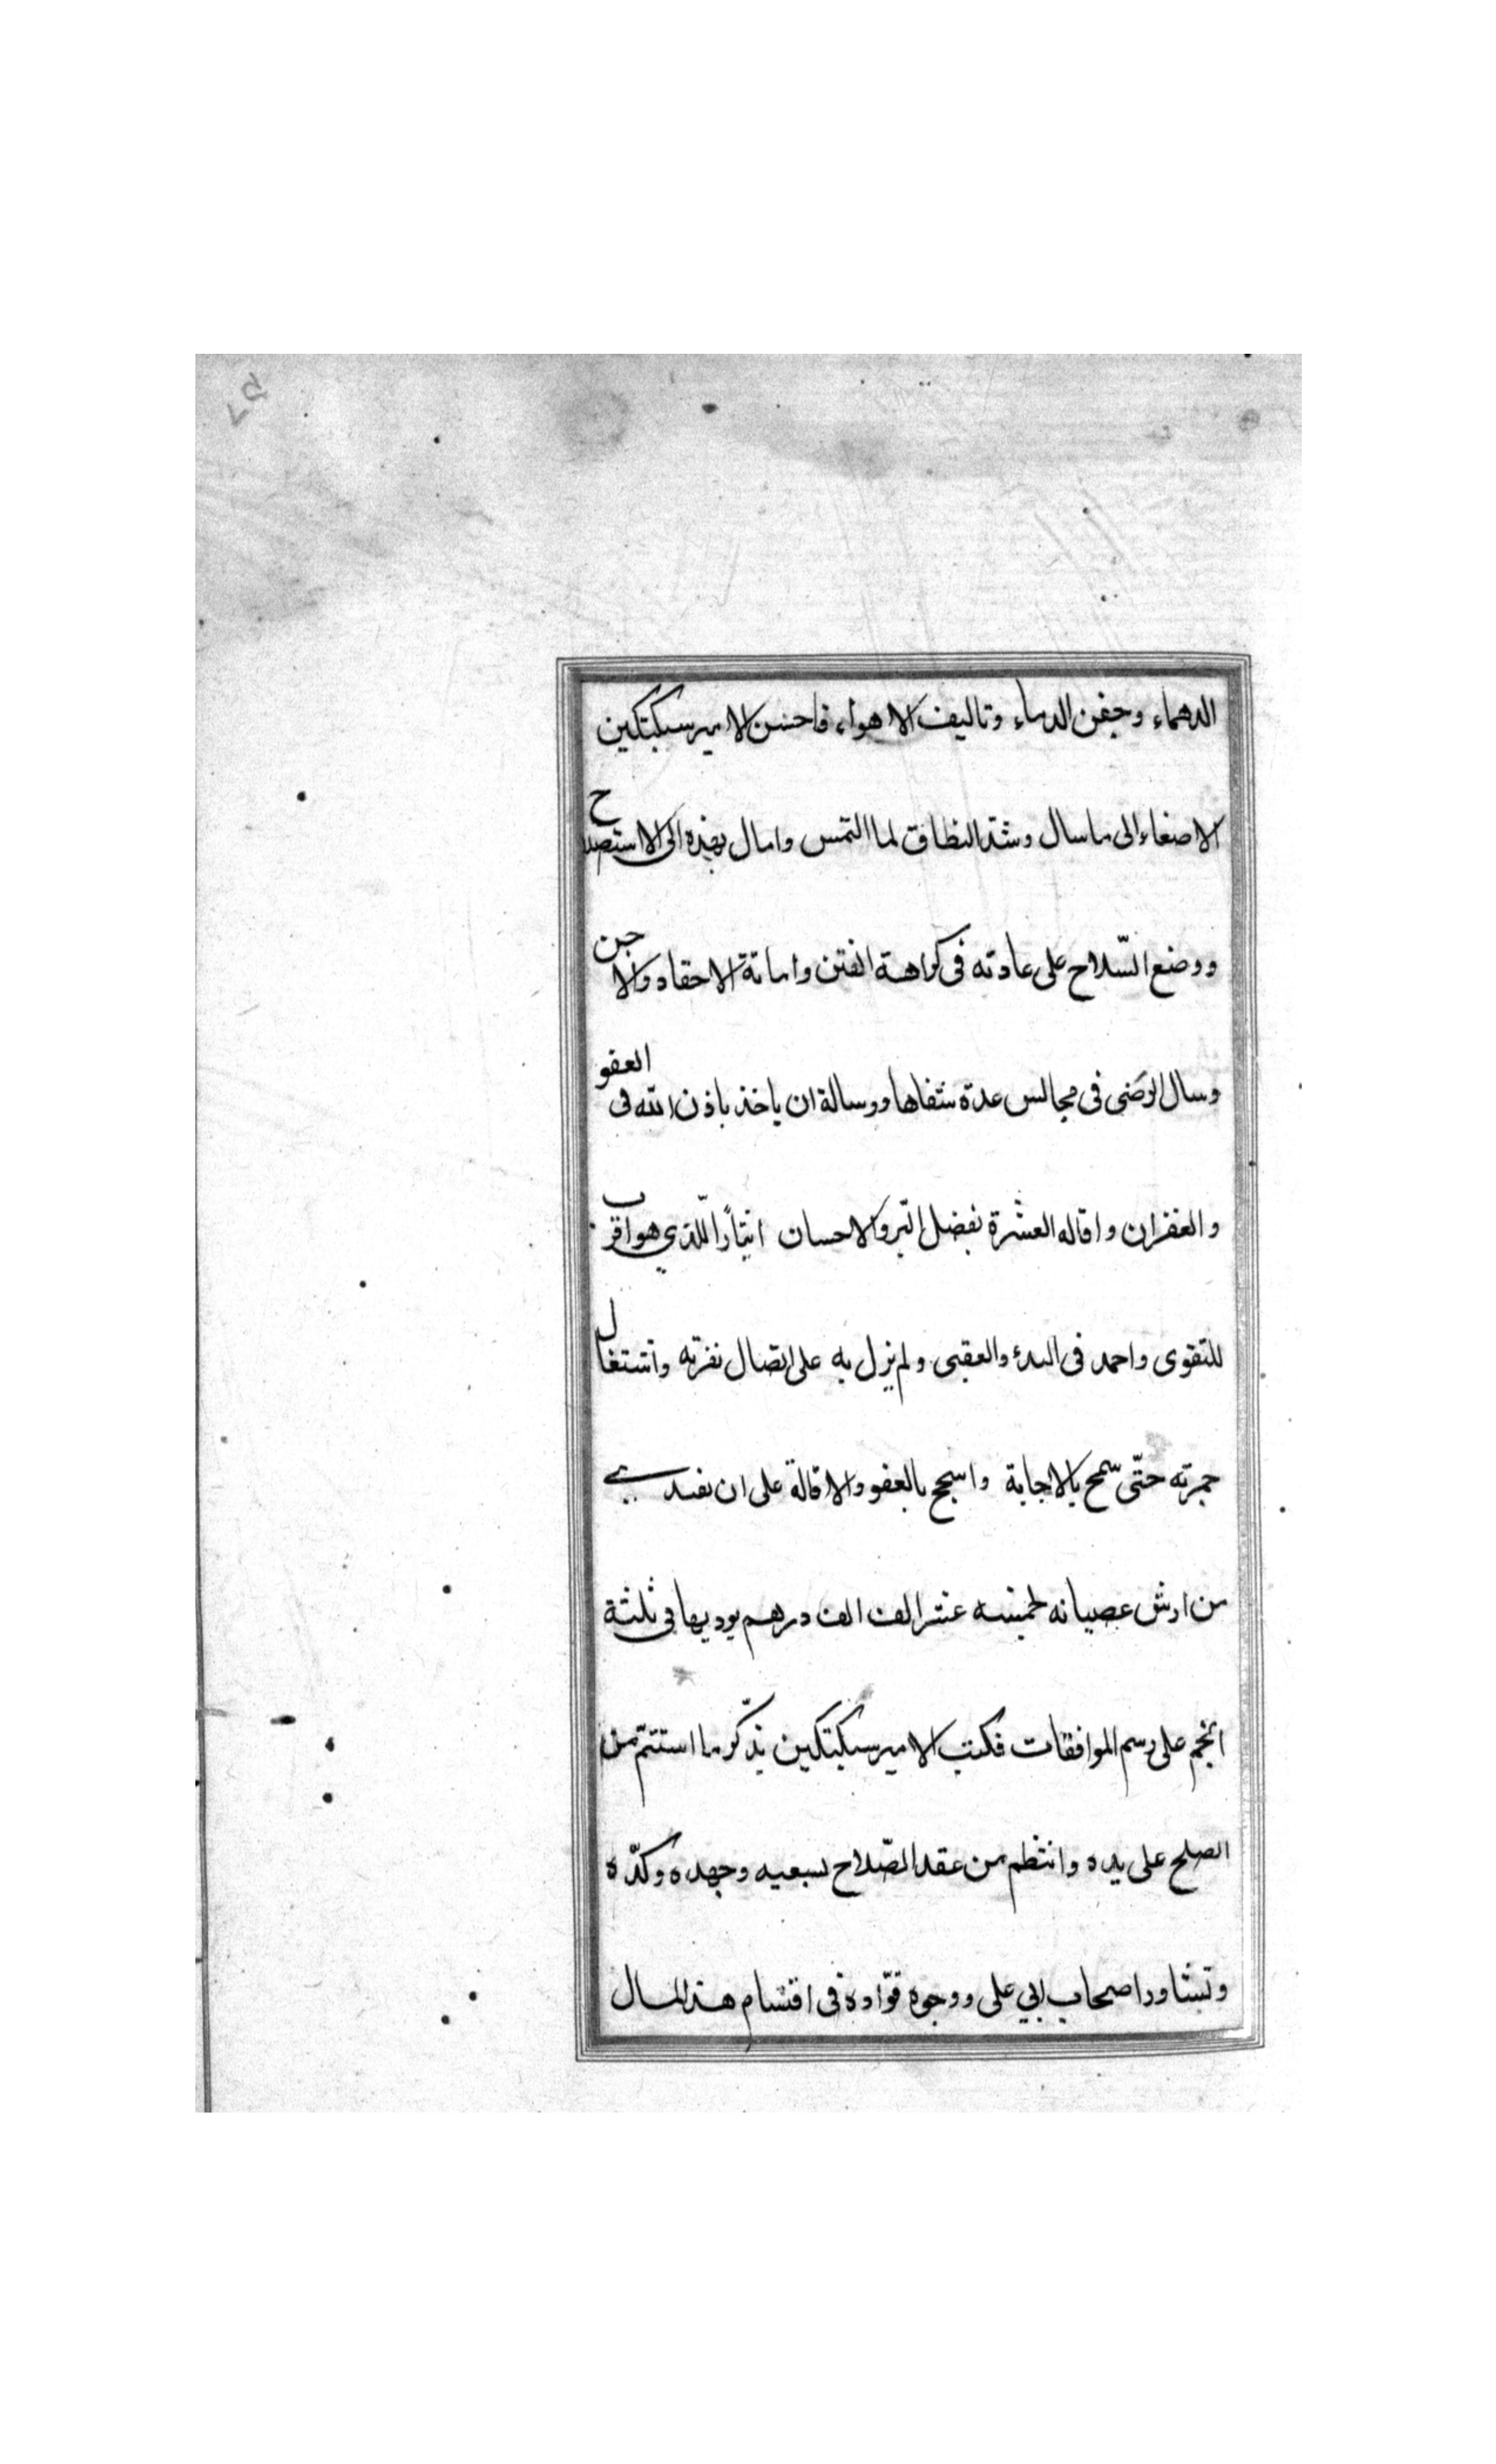 الدهماء وحقن الدماء وتاليف الاهواء فاحسن الامير سبكتكين
الاصغاء الى ما سال وشد النطاق لما التمس وامال بهذه الى الاستصلاح
ووضع السّلاح على عادته فى كراهة الفتن واماتة الاحقاد والاحن
وسال الرضى فى مجالس عدة شفاها ورسالة ان ياخذ باذن الله فى العفو
والغفران واقاله العشرة بفضل البّر والاحسان ايثارًا للّذي هو اقرب
للتقوى واحمد فى البدء والعقبى ولم يزل به على اتصال نفرته واشتغال
جمرته حتّى سمح بالاجابة واسجح بالعفو والاقالة على ان يفتدي
من ارش عصيانه لخمسه عشر الف الف درهم يوديها فى ثلثة
انجم على رسم الموافقات فكتب الامير سبكتكين يذّكر ما استتمّ من
الصلح على يده وانتظم من عقد الصّلاح بسعيه وجهده وكدّه
وتشاور اصحاب ابي على ووجوه قوّاده فى اقتسام هذا المال